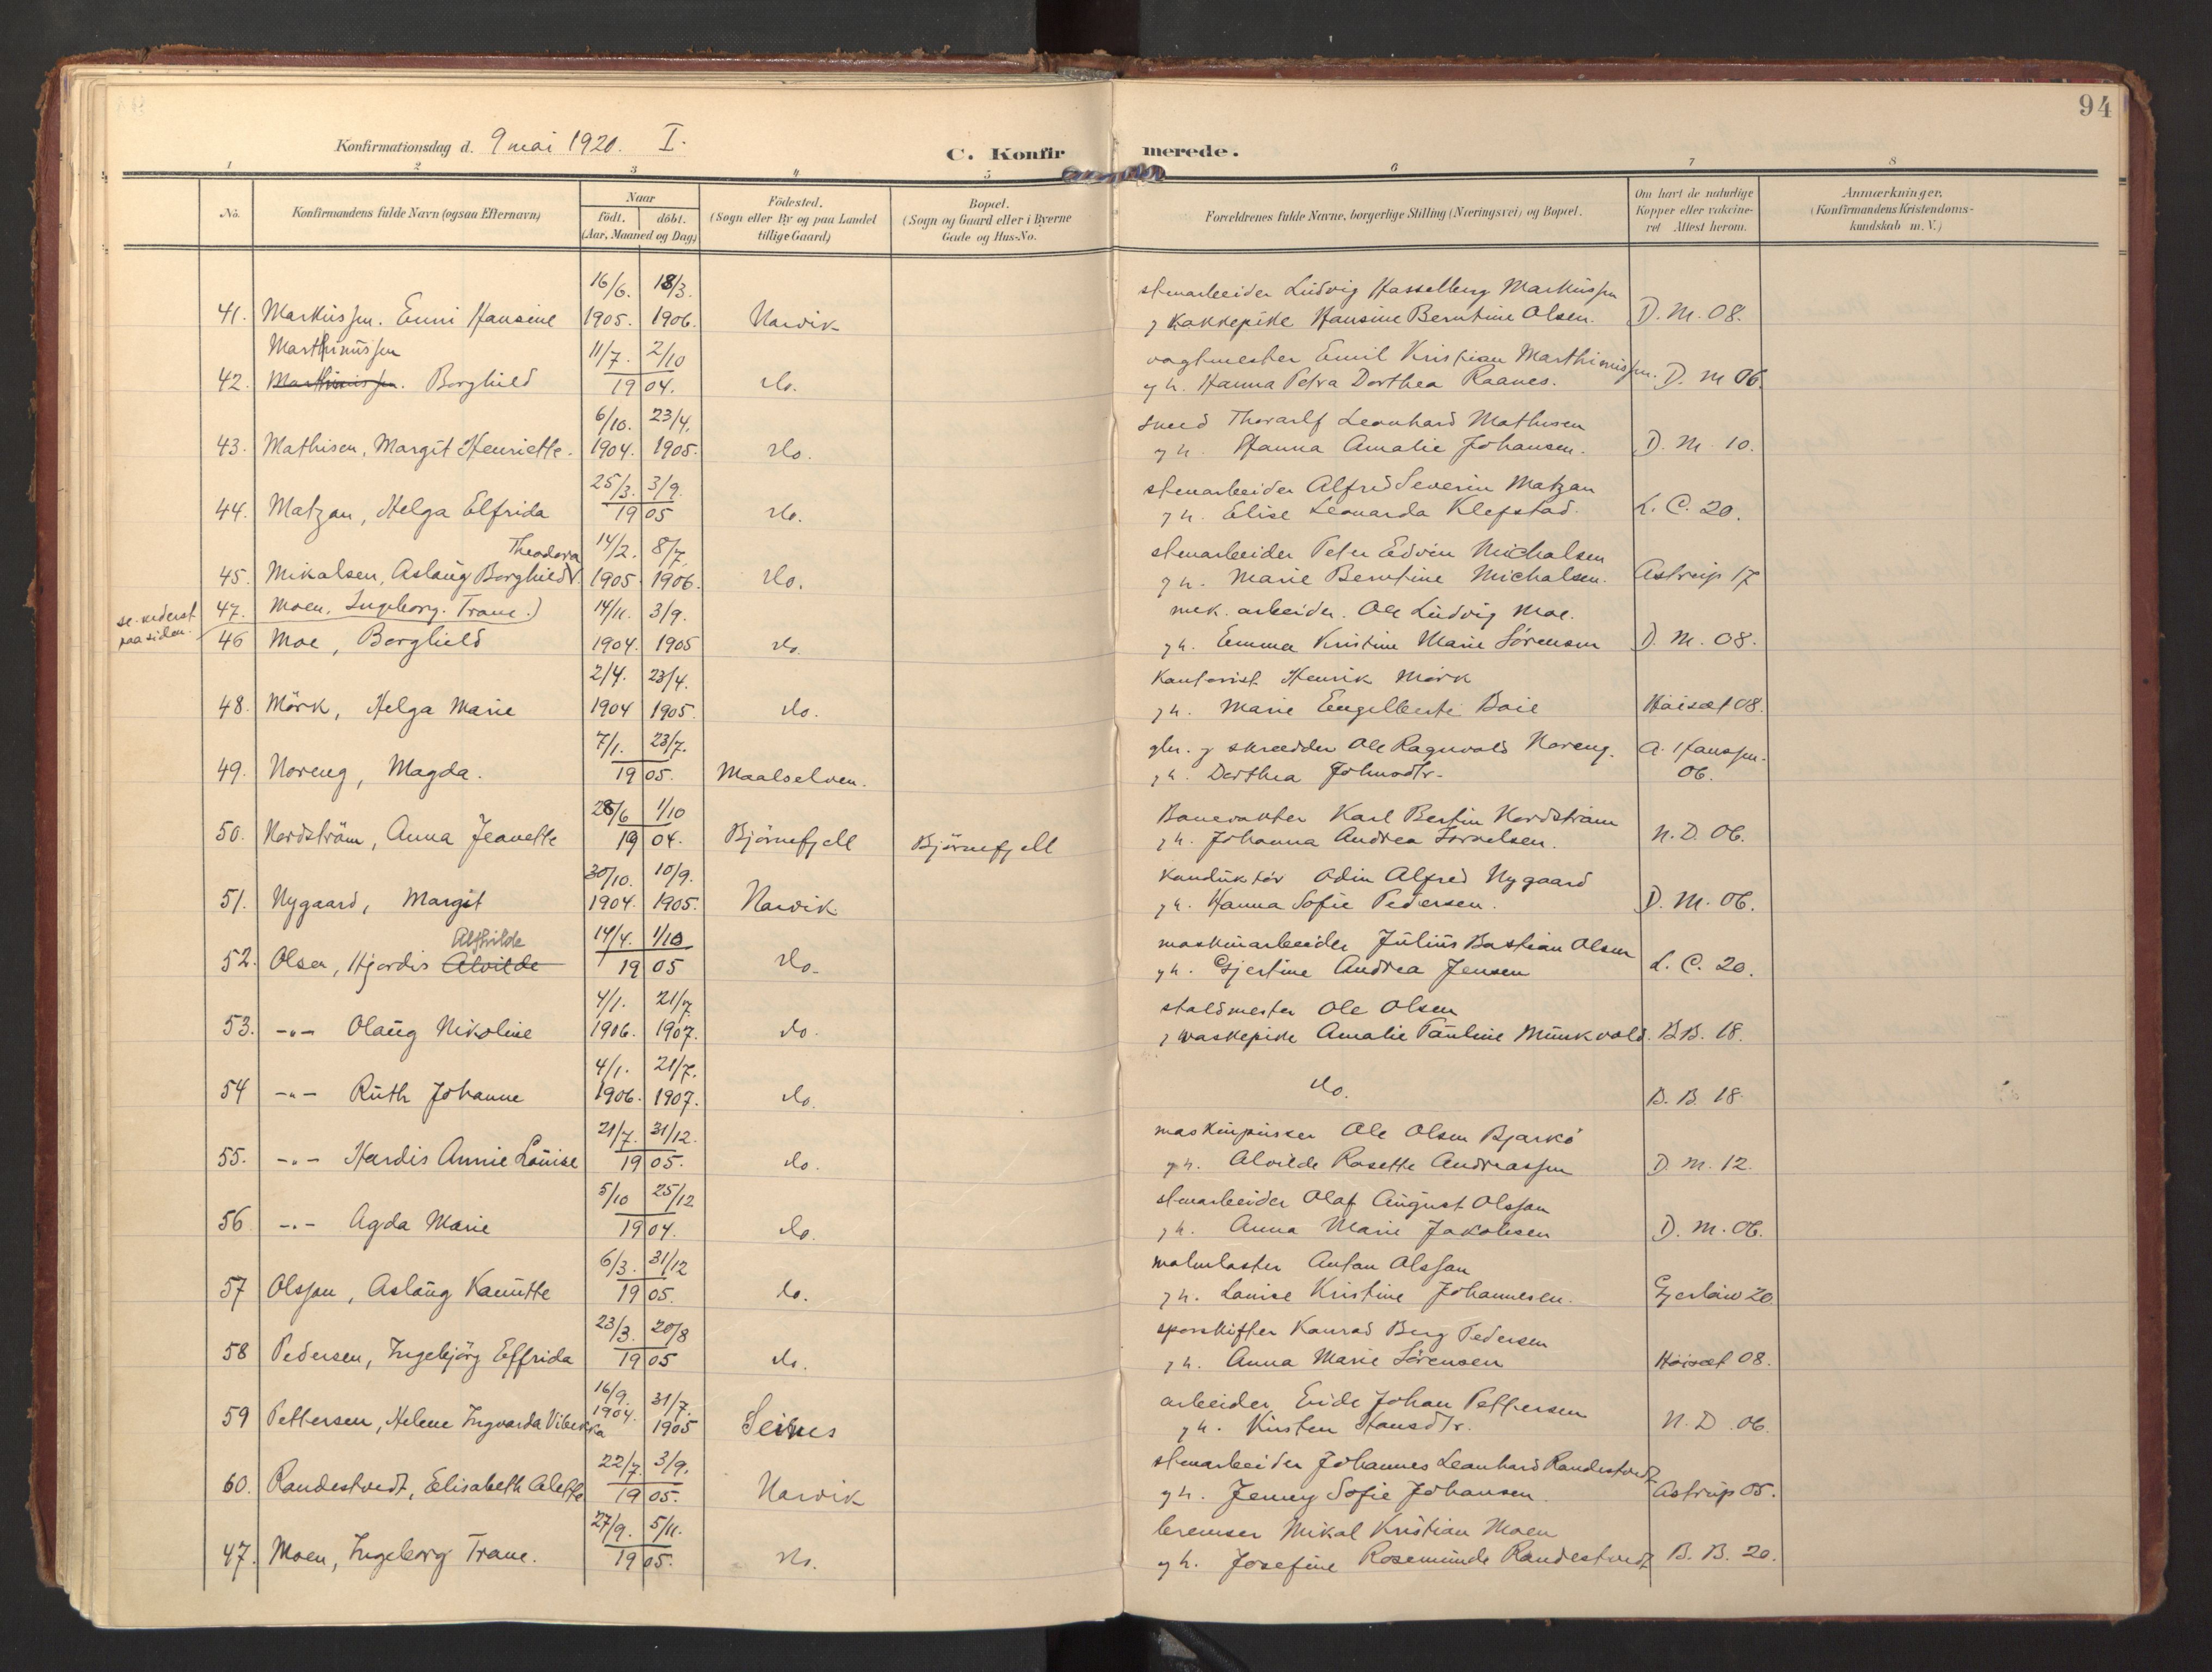 94
Konfirmationsdag d. 9 mai 1920. I.
C. Konfirmerede.
1 2 3 4 5 6 7 8
No.
Konfirmandens fulde Navn (ogsaa Efternavn)
Naar
født. döbt.
(Aar, Maaned og Dag)
Födested.
(Sogn eller By og paa Landet
tillige Gaard)
Bopæl.
(Sogn og Gaard eller i Byerne
Gade og Hus-No.
Forældrenes fulde Navne, borgerlige Stilling (Næringsvei) og Bopæl.
Om havt de naturlige
Kopper eller vakcine-
ret Attest herom.
Anmærkninger.
(Konfirmandens Kristendoms-
kundskab m. V.)
16/6. 18/3. stenarbeider Ludvig Hasselberg Markussen
41. Markussen. Enni Hansine 1905. 1906. Narvik g kokkepike Hansine Berntine Olsen. D. M. 08.
Marthinussen 11/7. 2/10 vagtmester Emil Kristian Marthinussen.
42. Marthinussen. Borghild 1904. do. g h. Hanna Petra Dorthea Raanes. D. M 06.
6/10. 23/4. smed Thoralf Leonhard Mathisen
43. Mathisen, Margit Henriette. 1904. 1905. do. g h. Hanna Amalie Johansen. D. M. 10.
25/3. 3/9. stenarbeider Alfred Severin Matzan
44. Matzan, Helga Elfrida 1905 do. g h. Elise Leonarda Klefstad. L. C. 20.
Theodora 14/2. 8/7. stenarbeider Peter Edvin Michalsen
45. Mikalsen, Aslaug Borghild 1905. 1906. do. g h. Marie Berntine Michalsen. Astrup 17
se nederst paa siden. 47. Moen, Ingeborg. Trane.) 14/11. 3/9. mek. arbeider. Ole Ludvig Moe.
46 Moe, Borghild 1904. 1905 do. g h. Emma Kristine Marie Sørensen D. M. 08.
2/4. 23/4. Kontorist Henrik Mörk
48. Mörk, Helga Marie 1904 1905. do. g h. Marie Engelberte Boie Høisæt 08.
7/1. 23/7. gbr. g skrædder Ole Ragnvald Noreng. A. Hanssen.
49. Noreng, Magda. 1905. Maalselven. g h. Dorthea Johnsdtr. 06.
28/6 1/10 Banevokter Karl Bertin Nordström
50. Nordström, Anna Jeanette 1904. Björnefjell Björnefjell g h. Johanna Andrea Israelsen. N. D. 06.
30/10. 10/9. Konduktör Odin Alfred Nygaard
51. Nygaard, Margit 1904. 1905. Narvik g h. Hanna Sofie Pedersen. D. M. 06.
Alfhilde 14/4. 1/10 maskinarbeider Julius Bastian Olsen
52. Olsen, Hjordis Alvilde 1905 do. g h. Gjertine Andrea Jensen L. C. 20.
4/1. 21/7 staldmester Ole Olsen
53. -"- Olaug Nikoline 1906. 1907. do. g vaskepike Amalie Pauline Munkvold. B.B. 18.
4/1. 21/7.
54 -"- Ruth Johanne 1906. 1907. do. do. B. B. 18.
21/7. 31/12. maskinpusser Ole Olsen Bjarkö
55. -"- Hardis Annie Louise 1905. do. g h. Alvilde Rosette Andreassen D. M. 12.
5/10 25/12 stenarbeider Olaf August Olsson
56. -"- Agda Marie 1904. do. g h. Anna Marie Jakobsen D. M. 06.
6/3. 31/12 malmlaster Anton Olsson
57 Olsson, Aslaug Kamitte 1905. do. g h. Louise Kristine Johannesen. Gjerløw 20.
23/3. 20/8 sporskifter Konrad Berg Pedersen
58 Pedersen, Ingebjörg Effrida 1905 do. g h. Anna Marie Sörensen Høisæt 08.
16/9. 31/7. arbeider Eide Johan Pettersen
59 Pettersen, Helene Ingvarda Vibekka 1904. 1905 Seines g h. Kirsten Hansdtr. N. D. 06.
22/7. 3/9. stenarbeider Johannes Leonhard Randestvedt
60. Randestvedt, Elisabeth Alette 1905. Narvik g h. Jenny Sofie Johansen. Astrup 05.
27/9. 5/11. bremser Mikal Kristian Moen
47. Moen, Ingeborg Trane. 1905. do. g h. Josefine Rosemunde Randestvedt B. B. 20.